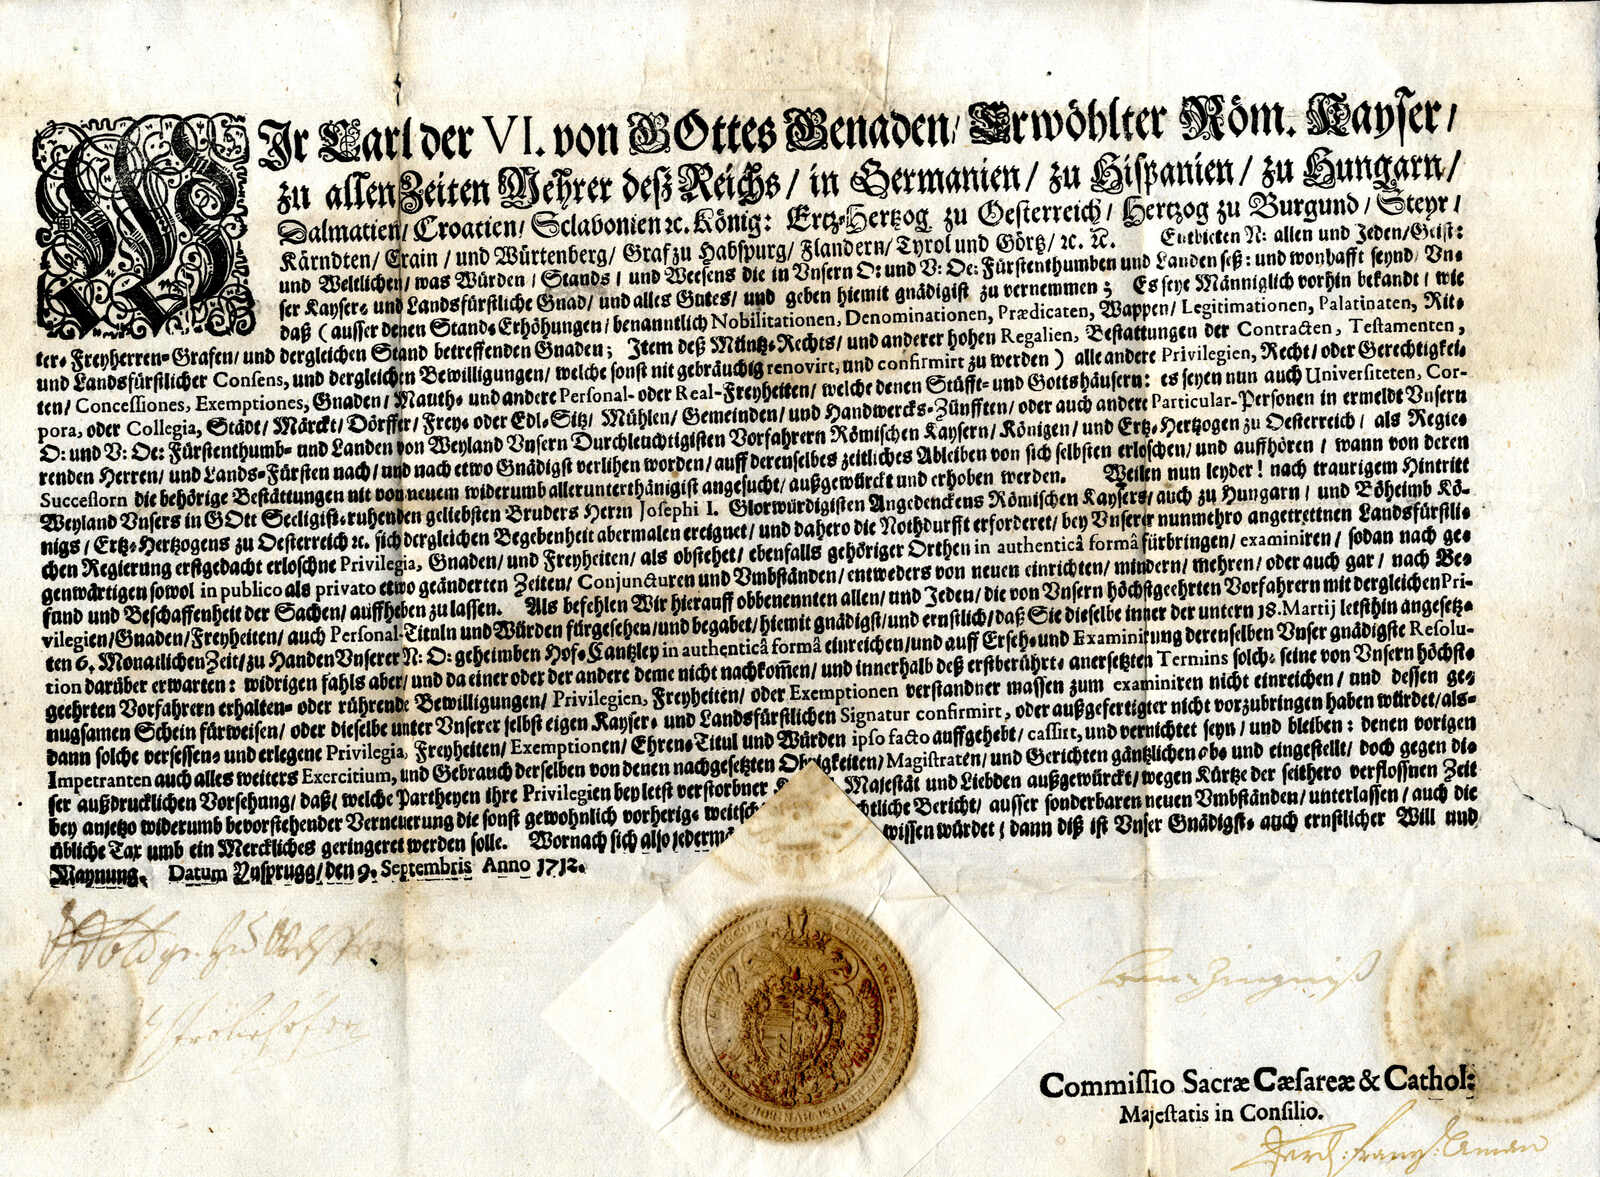 WIr Carl der VI. von GOttes Genaden/ Erwöhlter Röm. Kayser/
zu allen Zeiten Mehrer deß Reichs/ in Germanien/ zu Hispanien/ zu Hungarn/
Dalmatien/ Croatien/ Sclavonien ꝛc. König: Ertz-Hertzog zu Oesterreich/ Hertzog zu Burgund/ Steyr/
Kärndten/ Crain/ und Würtenberg/ Graf zu Habspurg/ Flandern/ Tyrol und Görtz/ ꝛc. ꝛc. Entbieten N: allen und Jeden/ Geist:
und Weltlichen/ was Würden/ Stands/ und Weesens die in Unsern O: und V: Oe: Fürstenthumben und Landen seß: und wonhafft seynd/ Un-
ser Kayser- und Landsfürstliche Gnad/ und alles Gutes/ und geben hiemit gnädigist zu vernemmen; Es seye Männiglich vorhin bekandt/ wie
daß (ausser denen Stand-Erhöhungen/ benanntlich Nobilitationen, Denominationen, Prædicaten, Wappen/ Legitimationen, Palatinaten, Rit-
ter- Freyherren- Grafen/ und dergleichen Stand betreffenden Gnaden; Item deß Müntz-Rechts/ und anderer hohen Regalien, Bestattungen der Contracten, Testamenten,
und Landsfürstlicher Consens, und dergleichen Bewilligungen/ welche sonst nit gebräuchig renovirt, und confirmirt zu werden) alle andere Privilegien, Recht/ oder Gerechtigkei-
ten/ Concessiones, Exemptiones, Gnaden/ Mauth- und andere Personal- oder Real-Freyheiten/ welche denen Stüfft- und Gottshäusern: es seyen nun auch Universiteten, Cor-
pora, oder Collegia, Städt/ Märckt/ Dörffer/ Frey- oder Edl-Sitz/ Mühlen/ Gemeinden/ und Handwercks-Zünfften/ oder auch andere Particular-Personen in ermeldt Unsern
O: und V: Oe: Fürstenthumb- und Landen von Weyland Unsern Durchleuchtigisten Vorfahrern Römischen Kaysern/ Königen/ und Ertz-Hertzogen zu Oesterreich/ als Regie-
renden Herren/ und Lands-Fürsten nach/ und nach etwo Gnädigst verlihen worden/ auff derenselbes zeitliches Ableiben von sich selbsten erloschen/ und auffhören/ wann von deren
Successorn die behörige Bestättungen nit von neuem widerumb allerunterthänigist angesucht/ außgewürckt und erhoben werden. Weilen nun leyder! nach traurigem Hintritt
Weyland Unsers in GOtt Seeligist-ruhenden geliebsten Bruders Herrn Josephi I. Glorwürdigisten Angedenckens Römischen Kaysers/ auch zu Hungarn/ und Böheimb Kö-
nigs/ Ertz-Hertzogens zu Oesterreich ꝛc. sich dergleichen Begebenheit abermalen ereignet/ und dahero die Nothdurfft erforderet/ bey Unserer nunmehro angetrettnen Landsfürstli-
chen Regierung erstgedacht erloschne Privilegia, Gnaden/ und Freyheiten/ als obstehet/ ebenfalls gehöriger Orthen in authenticâ formâ fürbringen/ examiniren/ sodan nach ge-
genwärtigen sowol in publico als privato etwo geänderten Zeiten/ Conjuncturen und Umbständen/ entweders von neuen einrichten/ mindern/ mehren/ oder auch gar/ nach Be-
fund und Beschaffenheit der Sachen/ auffheben zu lassen. Als befehlen Wir hierauff obbenennten allen/ und Jeden/ die von Unsern höchstgeehrten Vorfahrern mit dergleichen Pri-
vilegien/ Gnaden/ Freyheiten/ auch Personal-Tituln und Würden fürgesehen/ und begabet/ hiemit gnädigst/ und ernstlich/ daß Sie dieselbe inner der untern 18. Martij letsthin angesetz-
ten 6. Monatlichen Zeit/ zu Handen Unserer N: O: geheimben Hof-Cantzley in authenticâ formâ einreichen/ und auff Erseh- und Examinirung derenselben Unser gnädigste Resolu-
tion darüber erwarten: widrigen fahls aber/ und da einer oder der andere deme nicht nachkom̃en/ und innerhalb deß erstberührt- anersetzten Termins solch- seine von Unsern höchst-
geehrten Vorfahrern erhalten- oder rührende Bewilligungen/ Privilegien, Freyheiten/ oder Exemptionen verstandner massen zum examiniren nicht einreichen/ und dessen ge-
nugsamen Schein fürweisen/ oder dieselbe unter Unserer selbst eigen Kayser- und Landsfürstlichen Signatur confirmirt, oder außgefertigter nicht vorzubringen haben würdet/ als-
dann solche versessen- und erlegene Privilegia, Freyheiten/ Exemptionen/ Ehren-Titul und Würden ipso facto auffgehebt/ cassirt, und vernichtet seyn/ und bleiben: denen vorigen
Impetranten auch alles weiters Exercitium, und Gebrauch derselben von denen nachgesetzten Obrigkeiten/ Magistraten/ und Gerichten gäntzlichen ob- und eingestellt/ doch gegen di-
ser außdrucklichen Vorsehung/ daß/ welche Partheyen ihre Privilegien bey letst verstorbner Majestät und Liebden außgewürckt/ wegen Kürtze der seithero verflossnen Zeit
bey anjetzo widerumb bevorstehender Verneuerung die sonst gewohnlich vorherig- weitsch chtliche Bericht/ ausser sonderbaren neuen Umbständen/ unterlassen/ auch die
übliche Tax umb ein Merckliches geringeret werden solle. Wornach sich also jedermä wissen würdet/ dann diß ist Unser Gnädigst- auch ernstlicher Will und
Maynung. Datum Ynsprugg/ den 9. Septembris Anno 1712.
Commissio Sacræ Cæsareæ & Cathol:
Majestatis in Consilio.